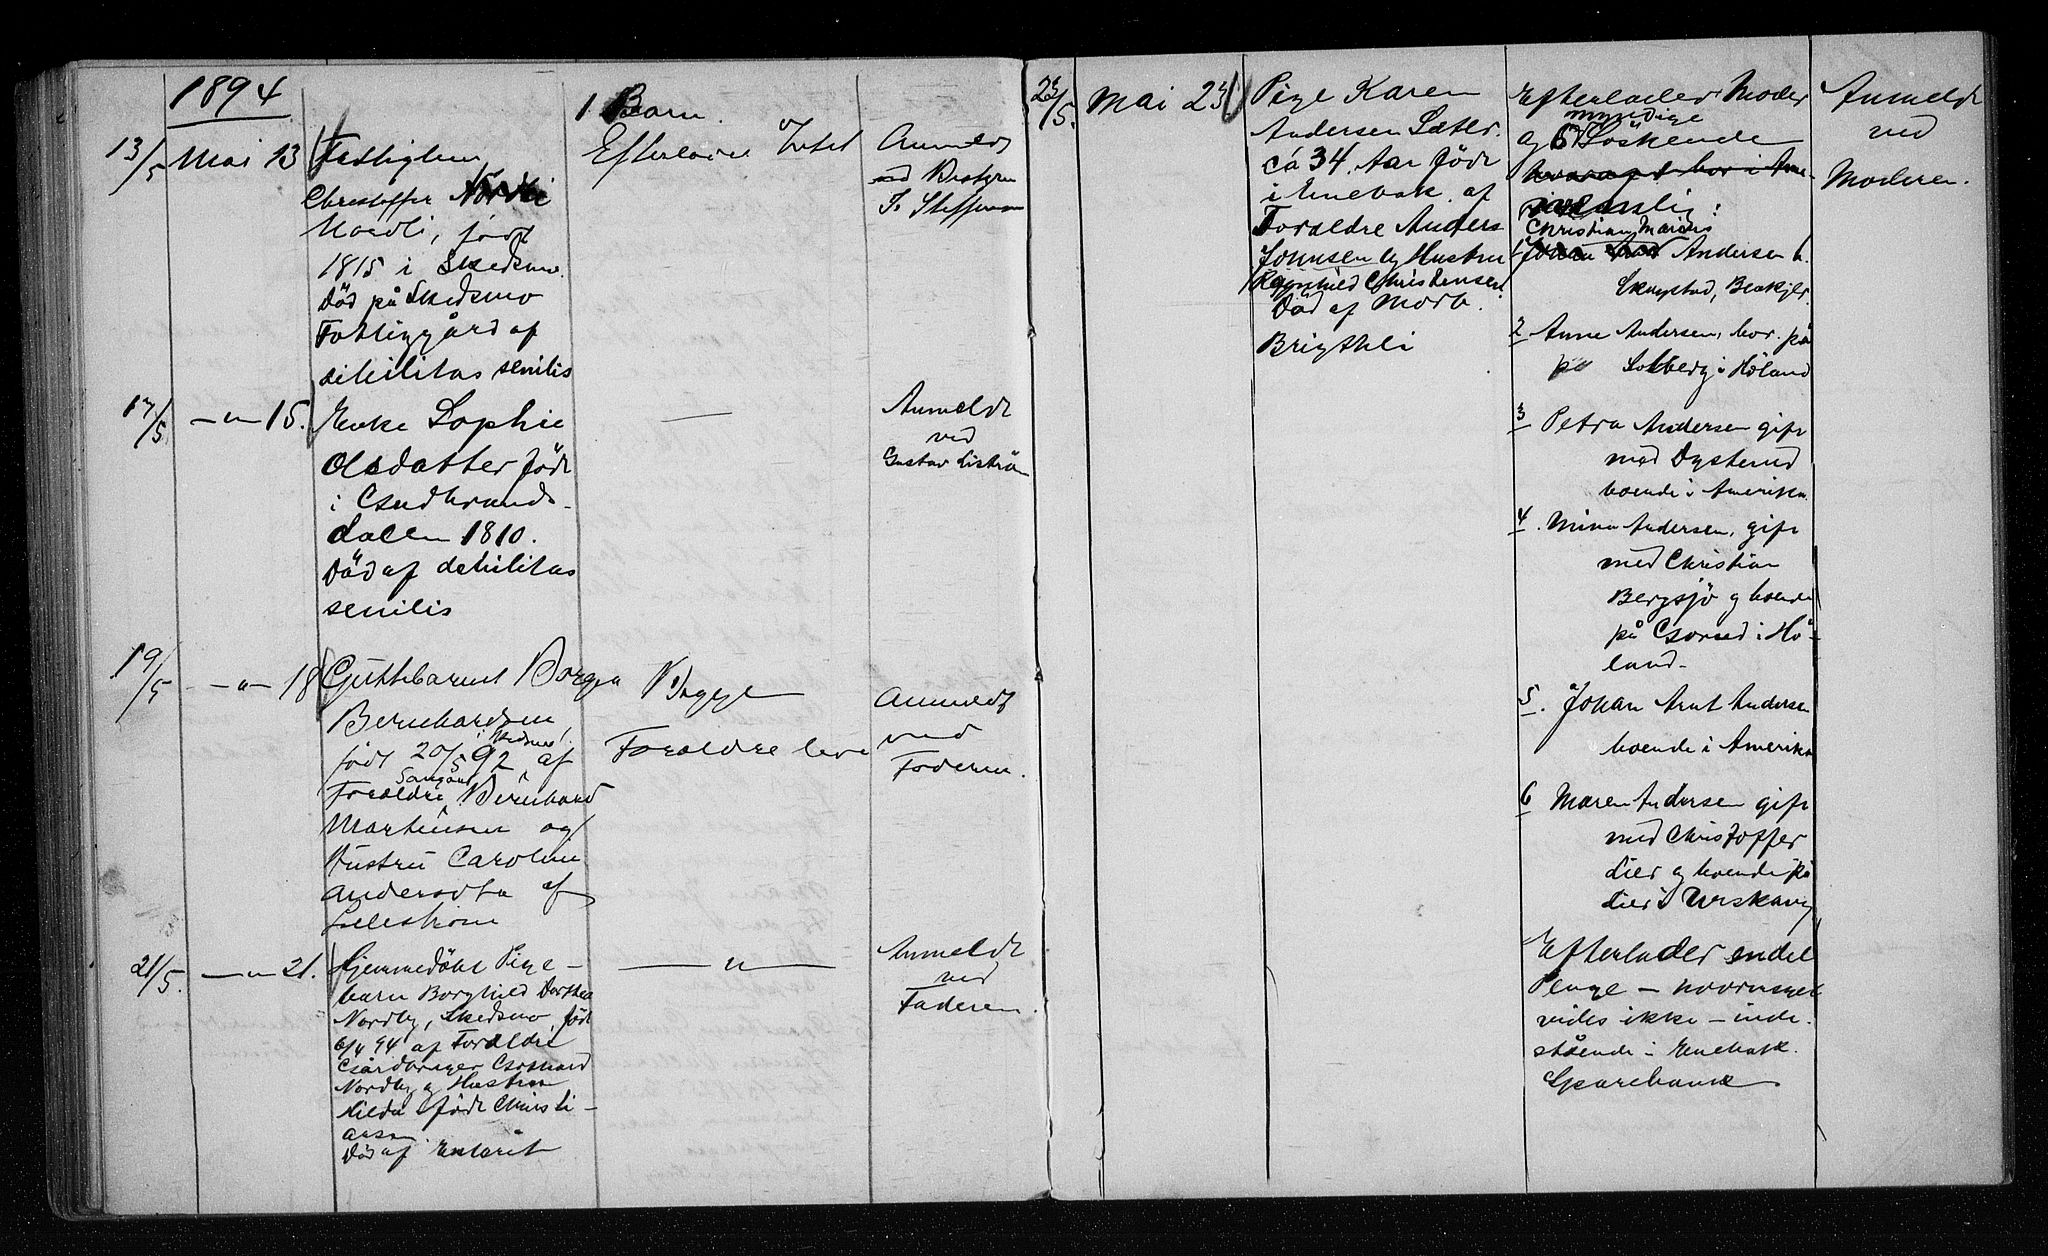 1894
1 Barn.
13/5 Mai 13 Fattiglem
Christoffer
Nordli, født
1815 i Skedsmo.
Död på Skedsmo
Fattiggård af
debilitas senilis
Efterlader Intet
Anmeldt
ved Bestyrer
S. Steffensen
17/5 — " — 15. Enke Sophie
Olsdatter född
i Gudbrands-
dalen 1810.
Död af debilitas
senilis
—
Anmeldt
ved
Gustav
19/5 — " — 18 Guttebarnet Borger
Bernhardsen
i Skedsmo
född 20/5 92 af
Forældre Bernhard
Martinsen og
Hustru Caroline
Andersdta af
Lilleström
Begge
Forældre leve
Anmeldt
ved
Faderen.
21/5. — " — 21. Hjemmedöbt Pige-
barn Borghild Dorthea
Nordby, Skedsmo, född
6/4 94 af Forældre
Gårdbruger
Nordby og Hustru
Hilda född Christi-
ansen
Död af Enterit
— " —
Anmeldt
ved
Faderen.
23/5. Mai 23 Pige Karen
Andersen Sæter.
ca 34 Aar född
i Enebak af
Forældre Anders
Johnsen og Hustru
Ragnhild Christensen
Död af Morb.
Brigthli
Efterlader Moder
myndige
og 6 Söskende
nemlig:
Christian Marius
1 Andersen b.
2 Anne Andersen, bor på
på Solberg i Höland
3 Petra Andersen gift
med Dysterud
boende i Amerika
4. Mina Andersen, gift
med Christian
Bergsjö og boende
på i Hö-
land-
5. Johan Arnt Andersen
boende i Amerika
6 Maren Andersen gift
med Christoffer
Lier og boende på
Lier i Urskoug
Efterlader endel
Penge — hvormeget
vides ikke — inde-
stående i Enebak
Sparebank
Anmeldt
ved
Moderen.